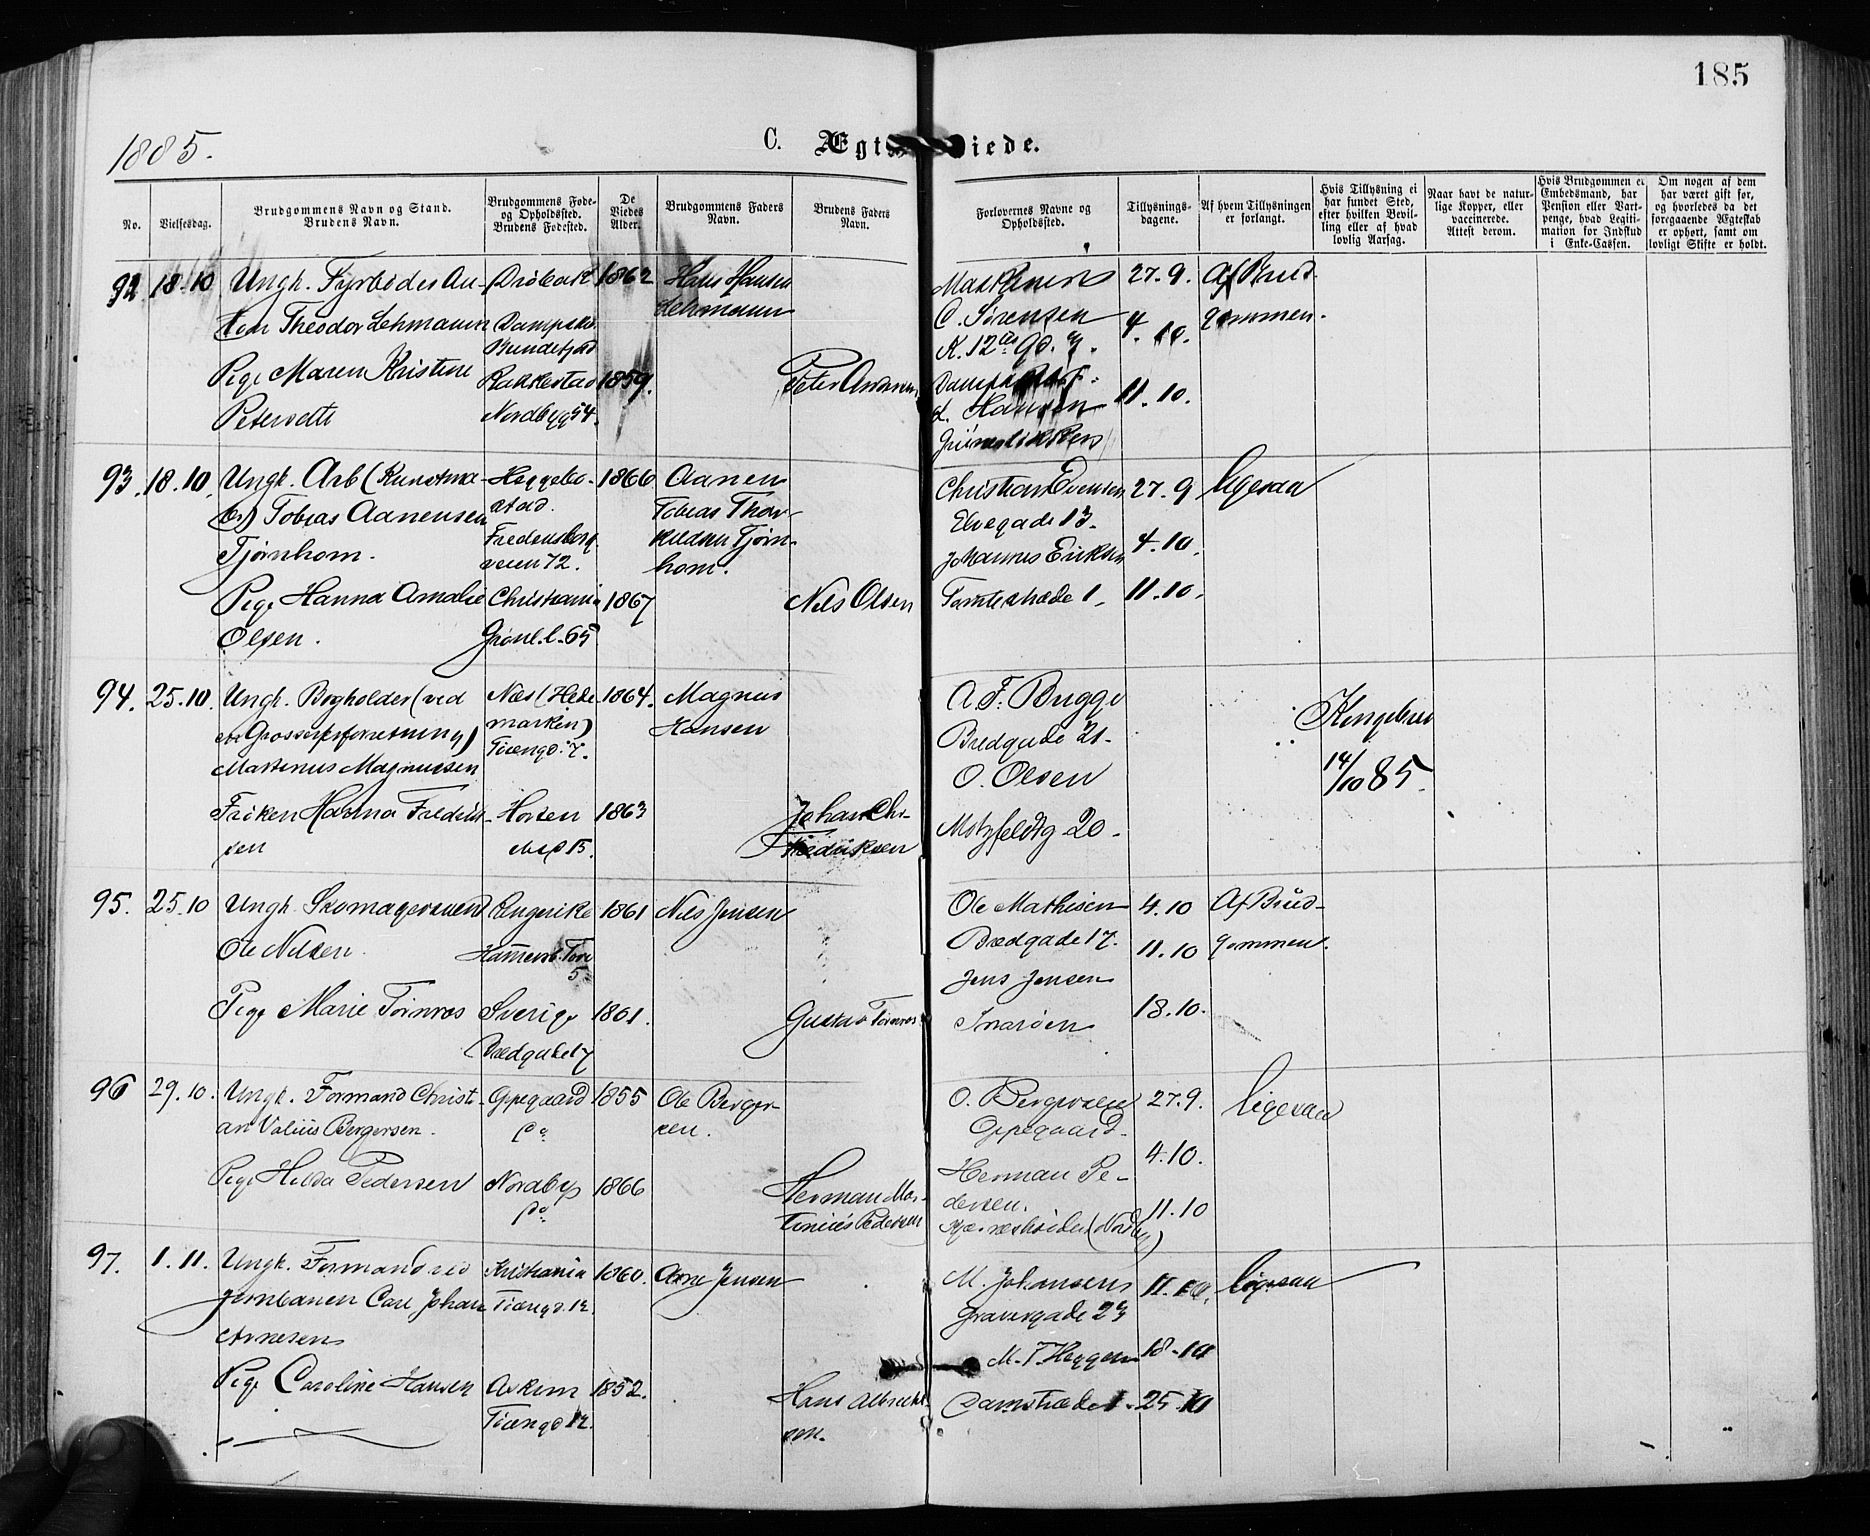 185
1885.
C. Ægt viede.
No.
Vielsesdag.
Brudgommens Navn og Stand.
Brudens Navn.
Brudgommens Føde-
og Opholdssted.
Brudens Fødested.
De
Viedes
Alder.
Brudgommens Faders
Navn.
Brudens Faders
Navn.
Forlovernes Navne og
Opholdssted.
Tillysnings-
dagene.
Af hvem Tillysningen
er forlangt.
Hvis Tillysning ei
har fundet Sted,
efter hvilken Bevil-
ling eller af hvad
lovlig Aarsag.
Naar havt de natur-
lige Kopper, eller
vaccinerede.
Attest derom.
Hvis Brudgommen er
Embedsmand, har
Pension eller Vart-
penge, hvad Legiti-
mation for Indskud
i Enke-Cassen.
Om nogen af dem
har været gift før,
og hvorledes da det
foregaaende Ægteskab
er ophørt, samt om
lovligt Skifte er holdt.
92. 18.10
Ungk. Fyrbøder An-
ton Theodor Lehmann
Pige Maren Kristine
Drøbak
Dampsk.
Bundefjord
Rakkestad
Nordbygg 54.
1862
1859.
Hans Hansen
Lehmann
Peter Andersen
Maskinist
C. Sørensen
K. 12
L. Hansen
Grünerløkken
27.9.
4.10.
11.10.
Af Brud-
gommen.
93. 18.10.
Ungk. Arb (Kunstma-
Tobias Aanensen
Tjørnhom.
Pige Hanna Amalie
Olsen.
Heggebo-
stad.
Fredensborg
veien 72.
Christiania
Grønl. l. 65
1866
1867
Aanen
Tobias Thor-
kildsen Tjørn-
hom.
Nils Olsen
Christian Evensen
Elvegade 13.
Johannes Eriksen
Tomtestræde 1.
27.9
4.10.
11.10.
ligesaa
94. 25.10.
Ungk. Bogholder (ved
en Grossererforretning)
Martinus Magnussen
Frøken Hanna Fredrik-
sen
Næs (Hede
marken)
Tøiengd. 7.
Horten
ibid 15.
1864.
1863
Magnus
Hansen
Johan Chr.
Fredriksen
A. F. Bugge
Bredgade 21.
O. Olsen
Motzfeldtg 20.
Kongebrev
14/10 85.
95. 25.10
Ungk. Skomagersvend
Ole Nilsen.
Pige Marie Törnros
Ringerike
5
Sverige
Bredgade 17
1861
1861.
Nils Jensen
Gustav Törnros
Ole Mathisen
Bredgade 17.
Jens Jensen
Snarøen
4.10
11.10
18.10.
Af Brud-
gommen.
96 29.10.
Ungk. Formand Christi-
an Valius Bergersen.
Pige Hilda Pedersen
Oppegaard
Nordby
1855
1866
Ole Berger-
sen.
Herman Mar-
tinius Pedersen
O. Bergersen
Oppegaard.
Herman Pe-
dersen.
27.9.
4.10.
11.10
ligesaa
97. 1.11.
Ungk. Formand ved
Jernbanen Carl Johan
Arnesen
Pige Caroline Hansen
Kristiania
Tøiengd. 12.
Askim
Tøiengd 12.
1860.
1852.
Arne Jensen
Hans Albrecht-
sen.
M. Johansen
Graversgade 23
M. T. Heggen
Damstræde 1.
11.10.
18.10
25.10
ligesaa